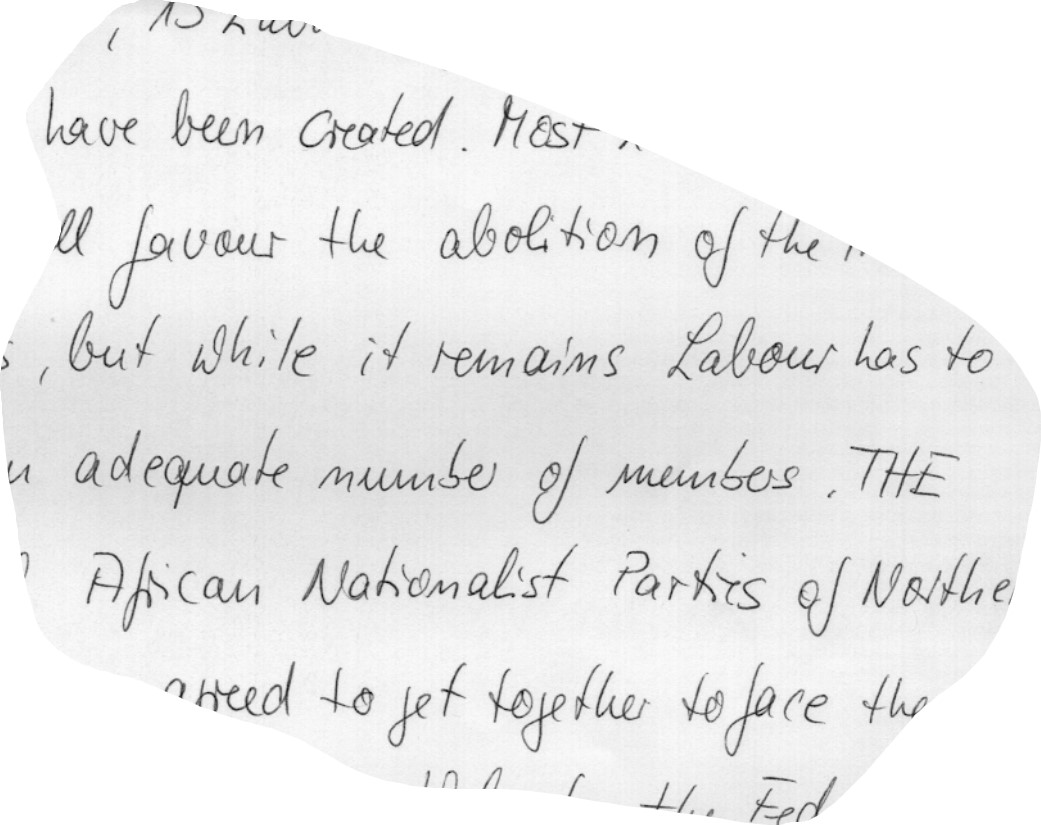 , 13
have been created. Most
ll favour the abolition of the
, but while it remains Labour has to
adequate number of members. THE
African Nationalist Parties of Northe
agreed to get together to face the
the Fed